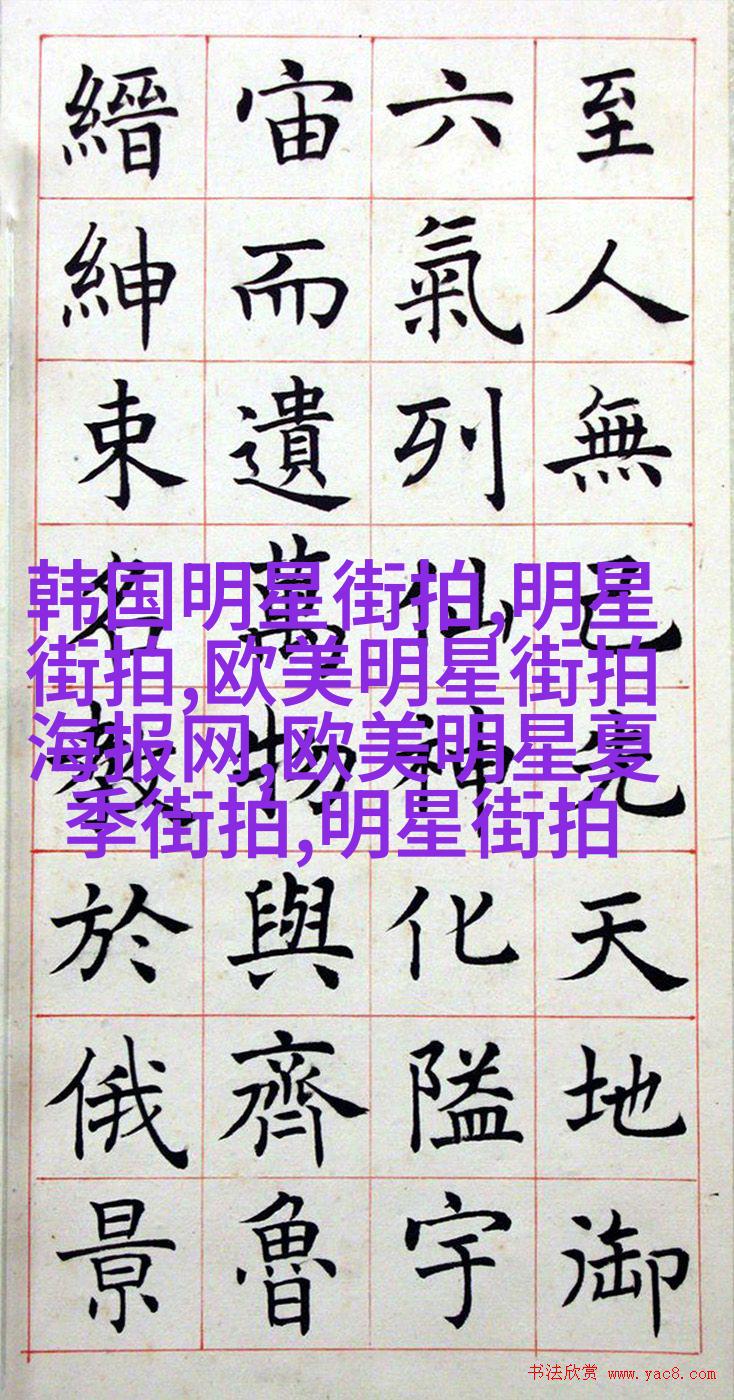 至人無己先天地御
六氣列仙神化隘宇
宙而遺萬物與齊魯
縉紳束名教於俄景
韩国明星街拍,明星
街拍,欧美明星街拍
海报网,欧美明星夏
季街拍,明星街拍
书法欣赏 www.yac8.com